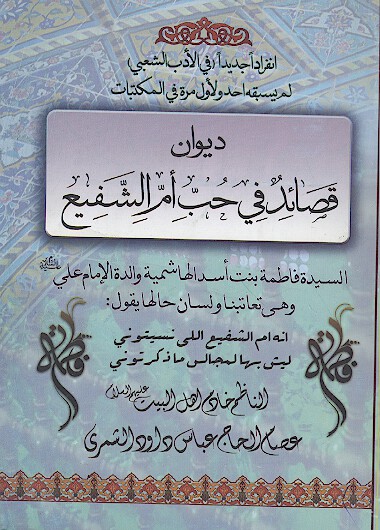 انفراداً جديداً (في الأدب الشعبي)
لم يسبقه احد ولأول مرة في المكتبات
ديوان
قصائدُ في حُبّ أمِّ الشَّفيع
السيدة فاطمة بنت أسد الهاشمية والدة الإمام علي
وهي تعاتبنا ولسان حالها يقول :
انه ام الشفيع اللي نسيتوني
ليش بهالمجالس ما ذكرتوني
الناظم خادم اهل البيت عليهم السلام
عصام الحاج عباس داود الشمري
فاطمة
فاطمة